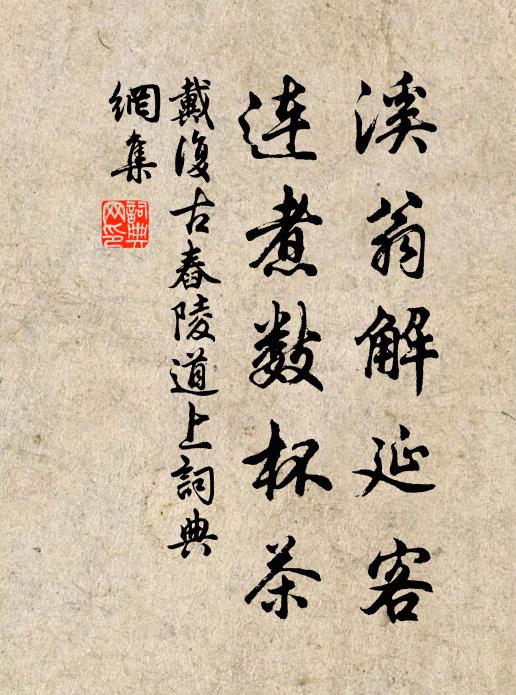 溪翁解延客
連煮數杯茶
戴復古舂陵道上詞典
網集
詞典
网印